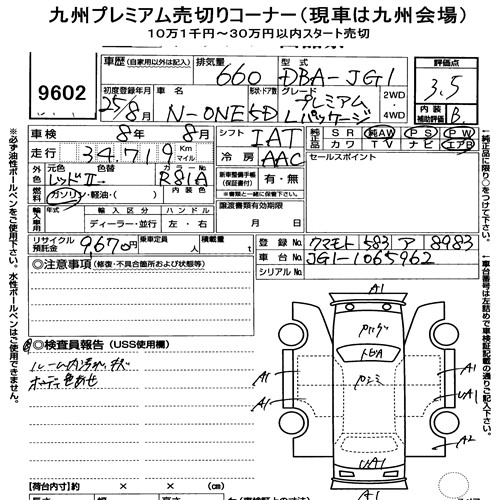 九州プレミアム売切りコーナー(現車は九州会場)
10万1千円～30万円以内スタート売切
9602
車歴 (自家用以外は記入) 排気量 660 型式 DBA-JG1 評価点 3.5
初度登録年月 25/8月 N-ONE 5D グレード プレミアム Lパッケージ 2WD・4WD 内装補助評価 B
車検 8年 8月 シフト IAT 純正品 SR 純AW PS PW
走行 34,719 Km マイル 冷房 AAC 革 カワ TV ナビ エアB
元色 レッドII 色替 カラーNo. R81A 新車整備手帳(保証書付) 有・無 セールスポイント
燃料 ガソリン・軽油・( ) ※書類と一緒に保管下さい。
輸入車用 年式 輸入区分 ハンドル 譲渡書類有効期限
ディーラー・並行 左・右 月 日
リサイクル預託金 9670円 乗車定員 人 積載量 t 登録No. クマモト 583 ア 8983
◎注意事項 (修復・不具合箇所および状態等) 車台No. JG1-1065962
シリアルNo.
◎検査員報告 (USS使用欄)
ルーム内汚れ・キズ
ボディ色あせ
A1
A1
A1
A1
UA1
A2
UA1
A1
【荷台内寸】 長さ × × (cm)
※必ず油性ボールペンをご使用下さい。水性ボールペンはご使用できません。
※純正品に限り○をつけて下さい。
※車台番号は左詰めで車検証記載の通りご記入下さい。